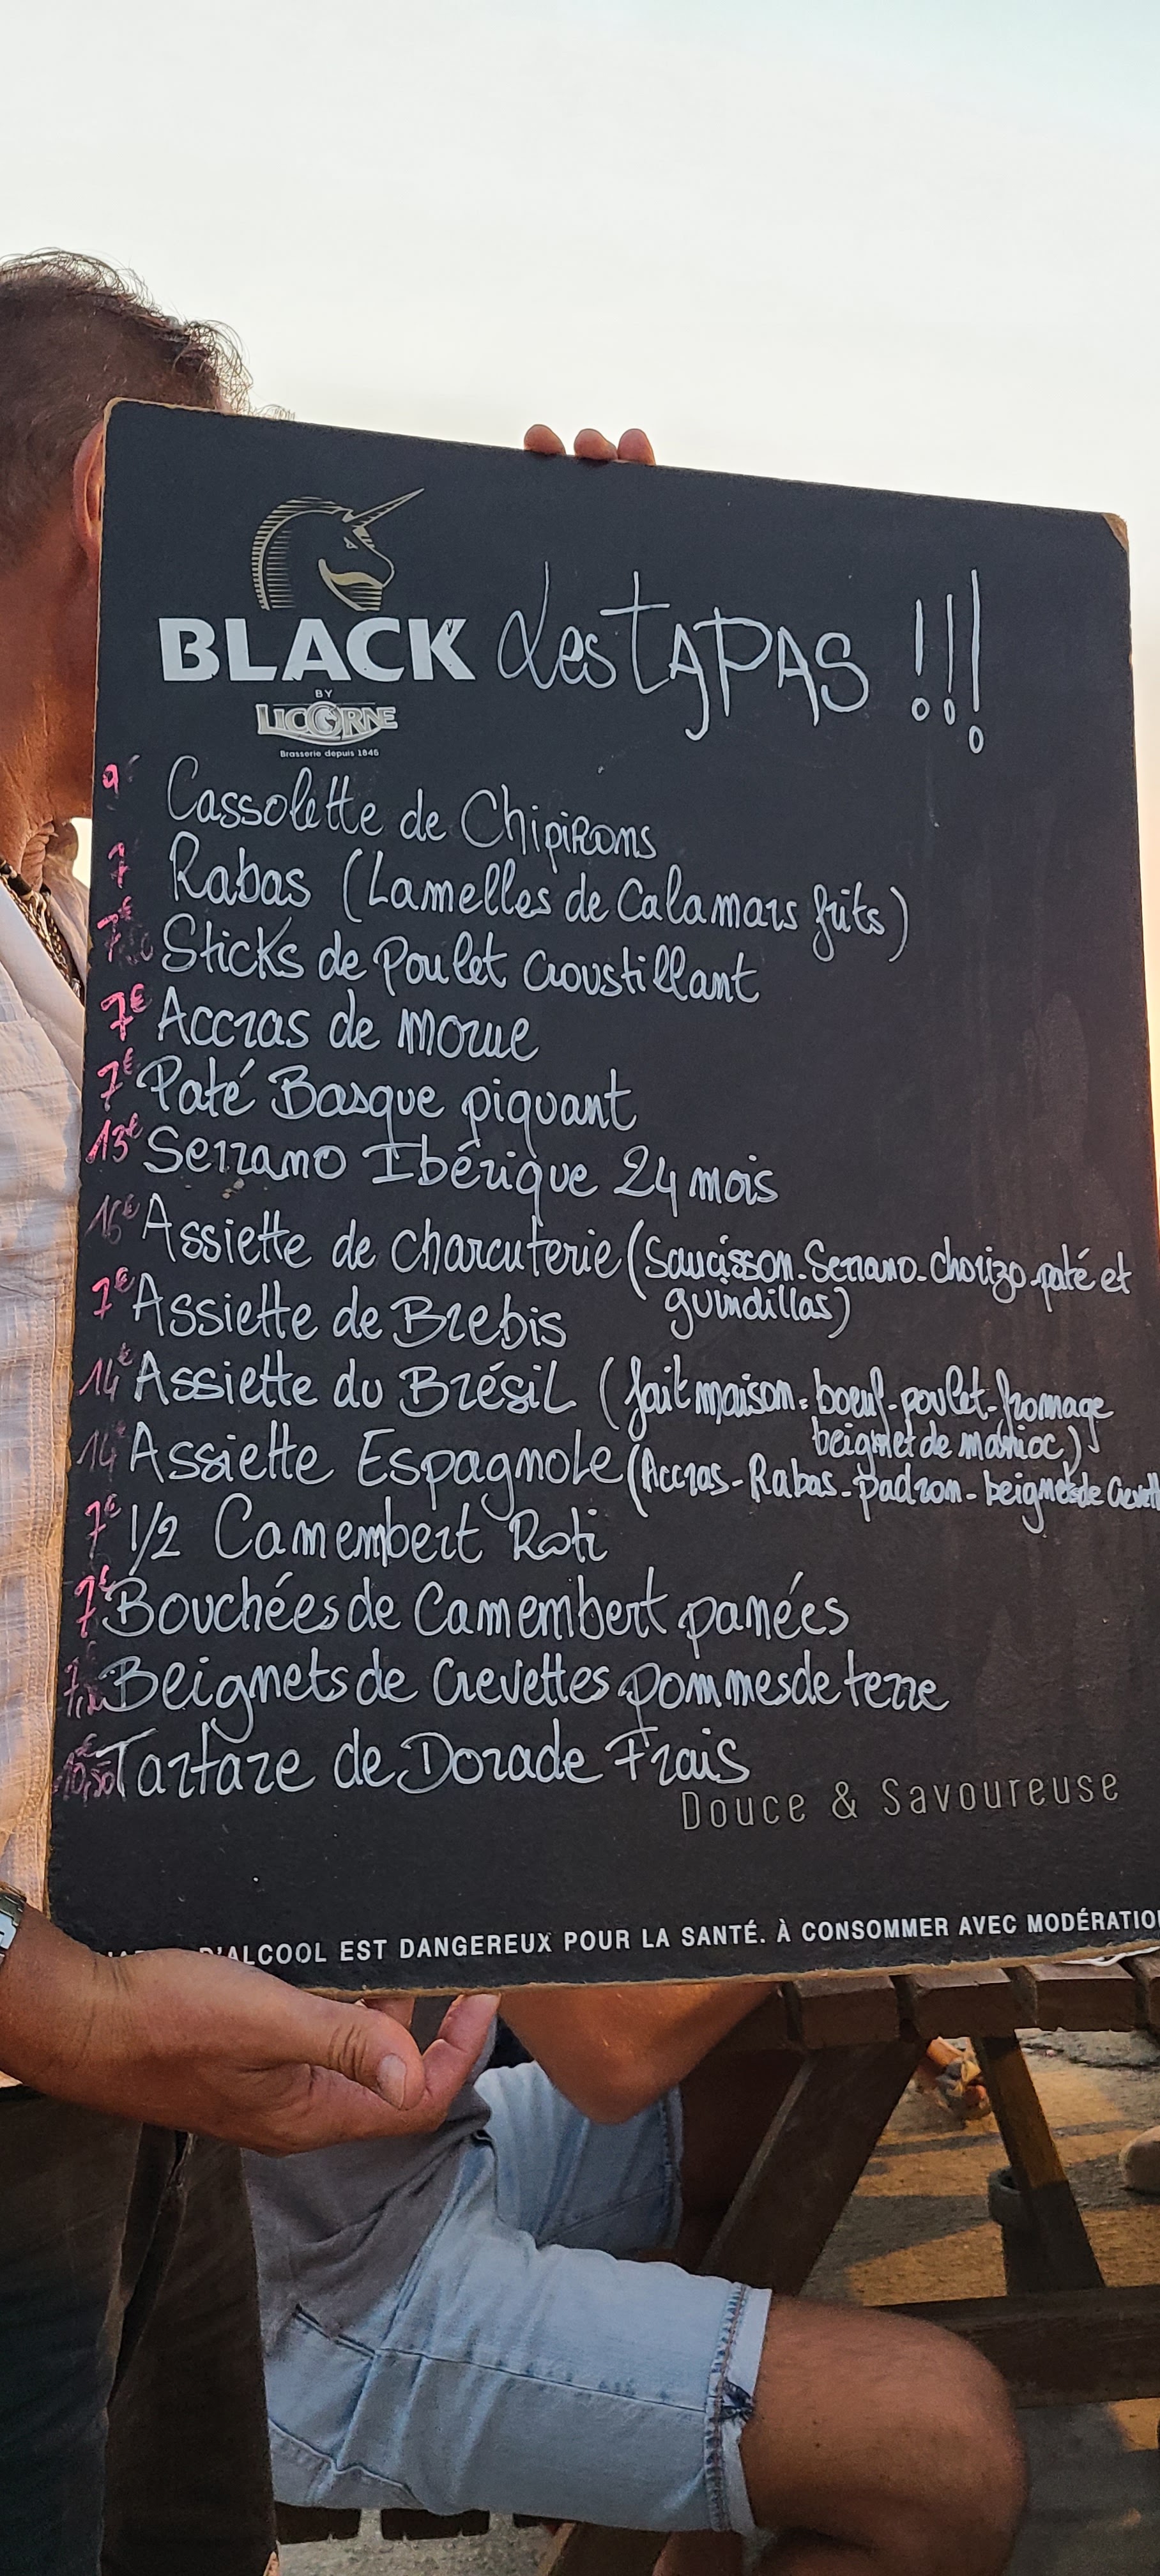 BLACK Les TAPAS !!!
BY
LICORNE
Brasserie depuis 1846
9€ Cassolette de Chipirons
7 Rabas (Lamelles de Calamars frits)
7€ Sticks de Poulet Croustillant
7€ Accras de morue
7€ Paté Basque piquant
13€ Serrano Ibérique 24 mois
16€ Assiette de charcuterie (Saucisson - Serrano - chorizo - paté et
guindillas)
7€ Assiette de Brebis
14€ Assiette du Brésil (fait maison - boeuf - poulet - fromage
beignet de manioc)
14€ Assiette Espagnole (Accras - Rabas - padron - beignets de Crevett
7€ 1/2 Camembert Roti
7€ Bouchées de Camembert panées
Beignets de Crevettes pommes de terre
10,50€ Tartare de Dorade Frais
Douce & Savoureuse
D'ALCOOL EST DANGEREUX POUR LA SANTÉ. À CONSOMMER AVEC MODÉRATIO